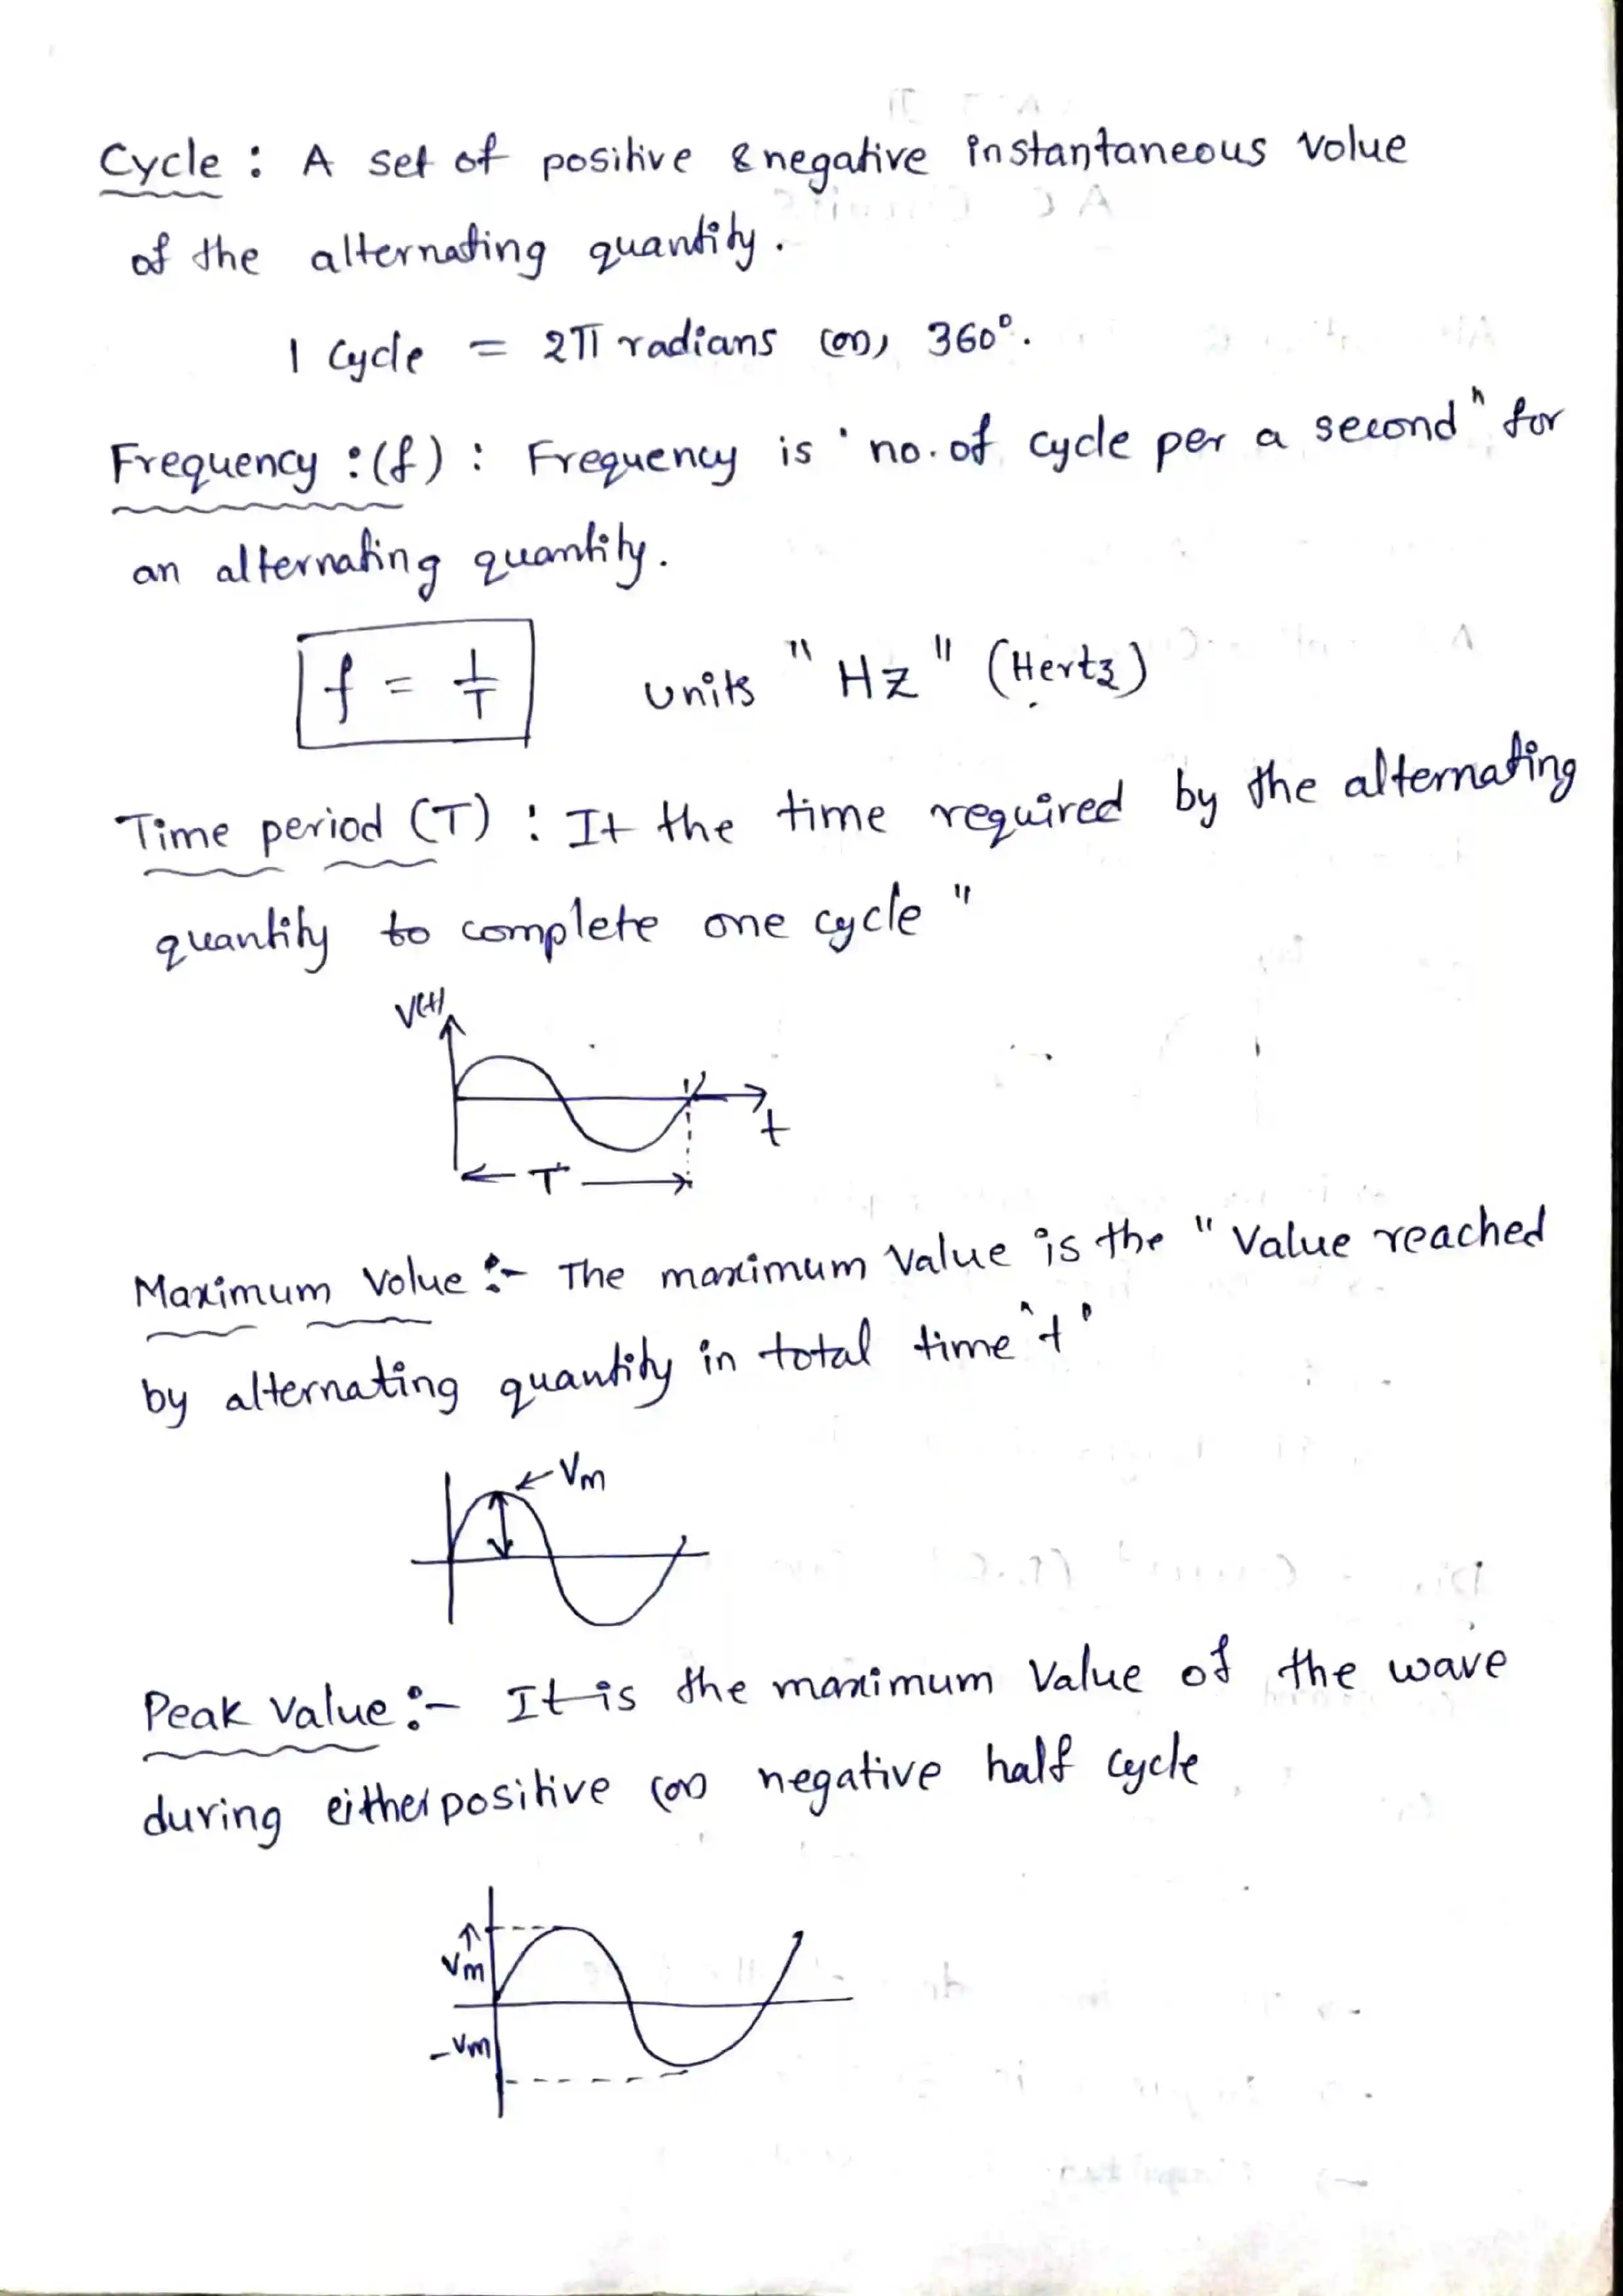 Cycle : A set of positive & negative instantaneous volue
of the alternating quantity.
1 cycle = 2π radians (or) 360°.
Frequency :(f) : Frequency is "no. of cycle per a second" for
an alternating quantity.
f = 1/T units "Hz" (Hertz)
Time period (T) : It the time required by the alternating
quantity to complete one cycle"
V(t)
t
T
Maximum Volue :- The maximum value is the "Value reached
by alternating quantity in total time 't'
Vm
Peak Value :- It is the maximum value of the wave
during either positive (or) negative half cycle
Vm
-Vm